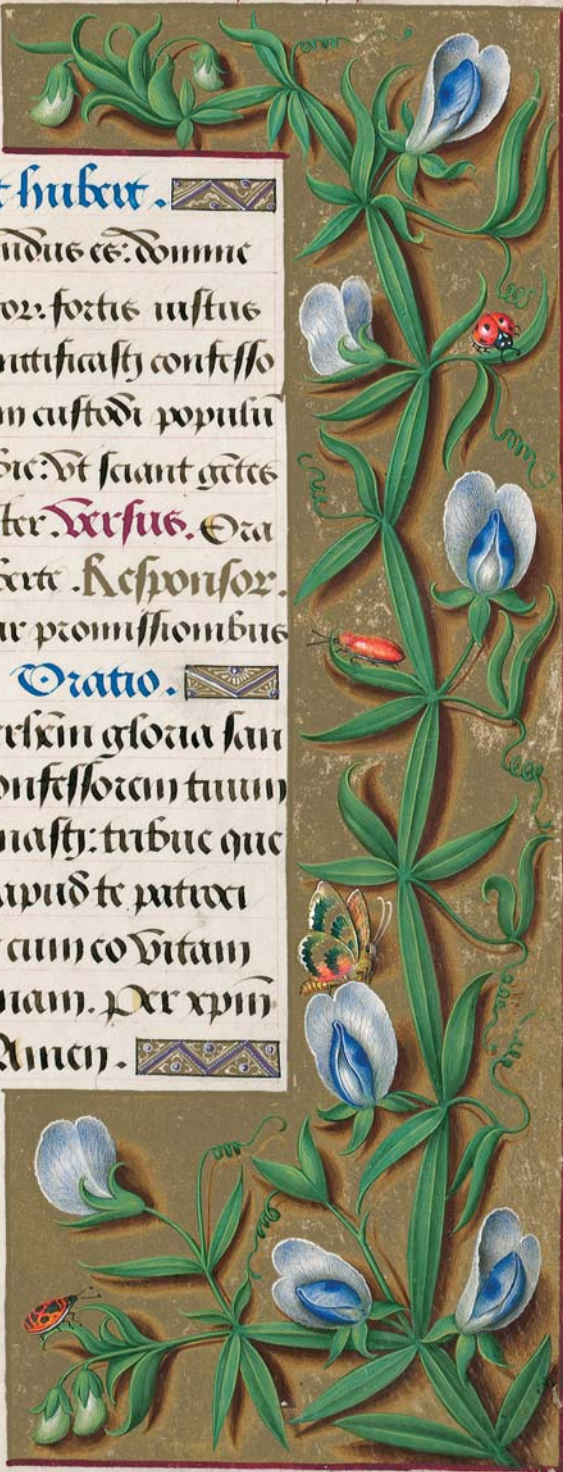 t hubert.
undus es: domine
or: fortis iustus
nctificasti confesso
m custodi populū
bre: Vt sciant gētes
ter. Versus. Ora
berte. Responsor.
ur promissionibus
Oratio.
gloria san
onfessorem tuum
nasti: tribue que
apud te patroci
cum eo vitam
nam. Per xpm̄
Amen.